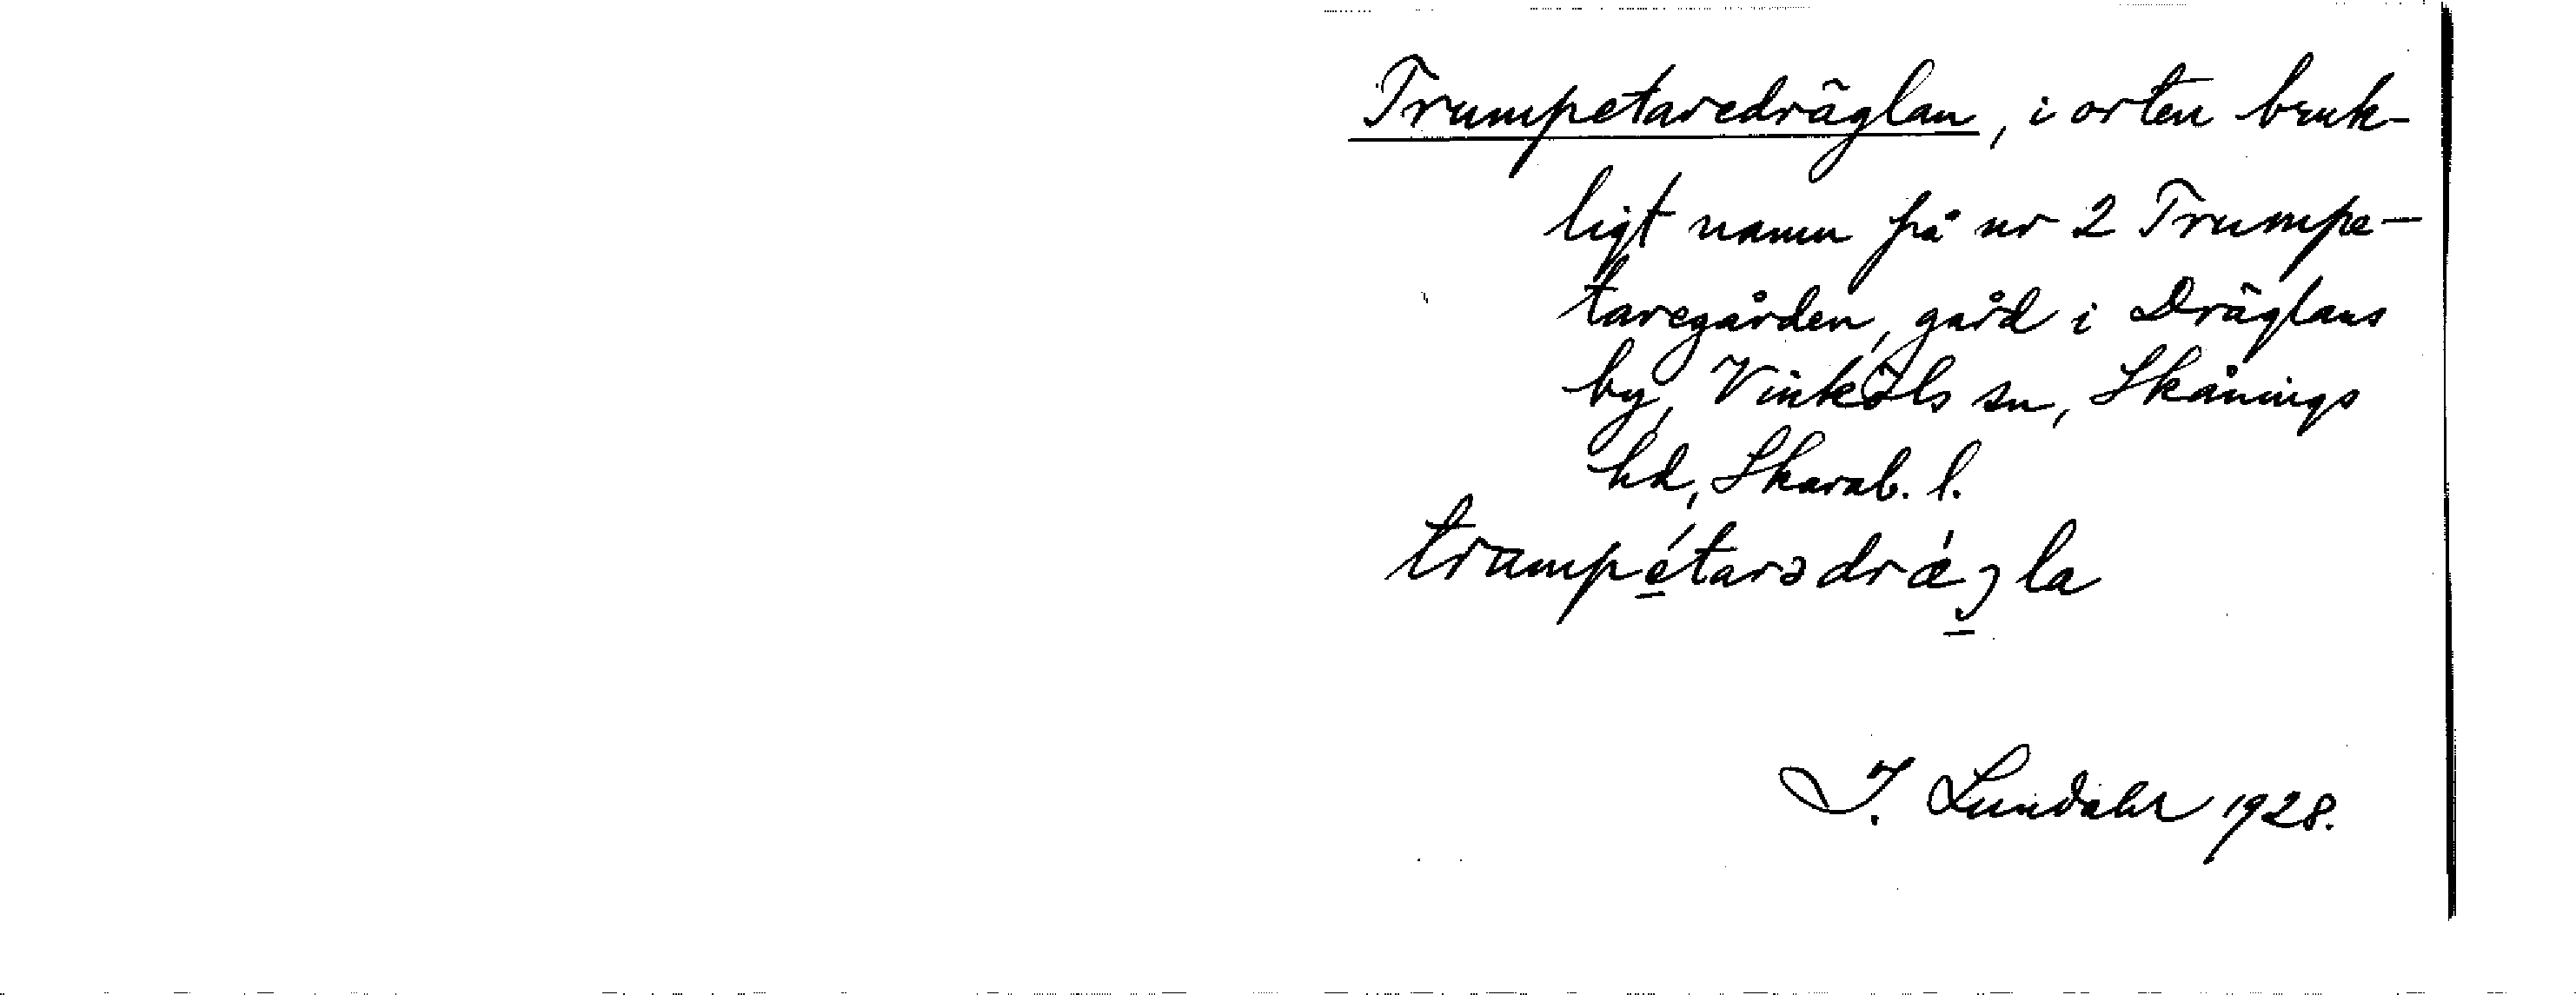 Trumpetaredräglan, i orten bruk-
ligt namn på nr 2 Trumpe-
taregården, gård i Dräglans
by, Vinköls sn, Skånings
hd, Skarab. l.
trumpétarədrǽgla
I. Lundahl 1928.